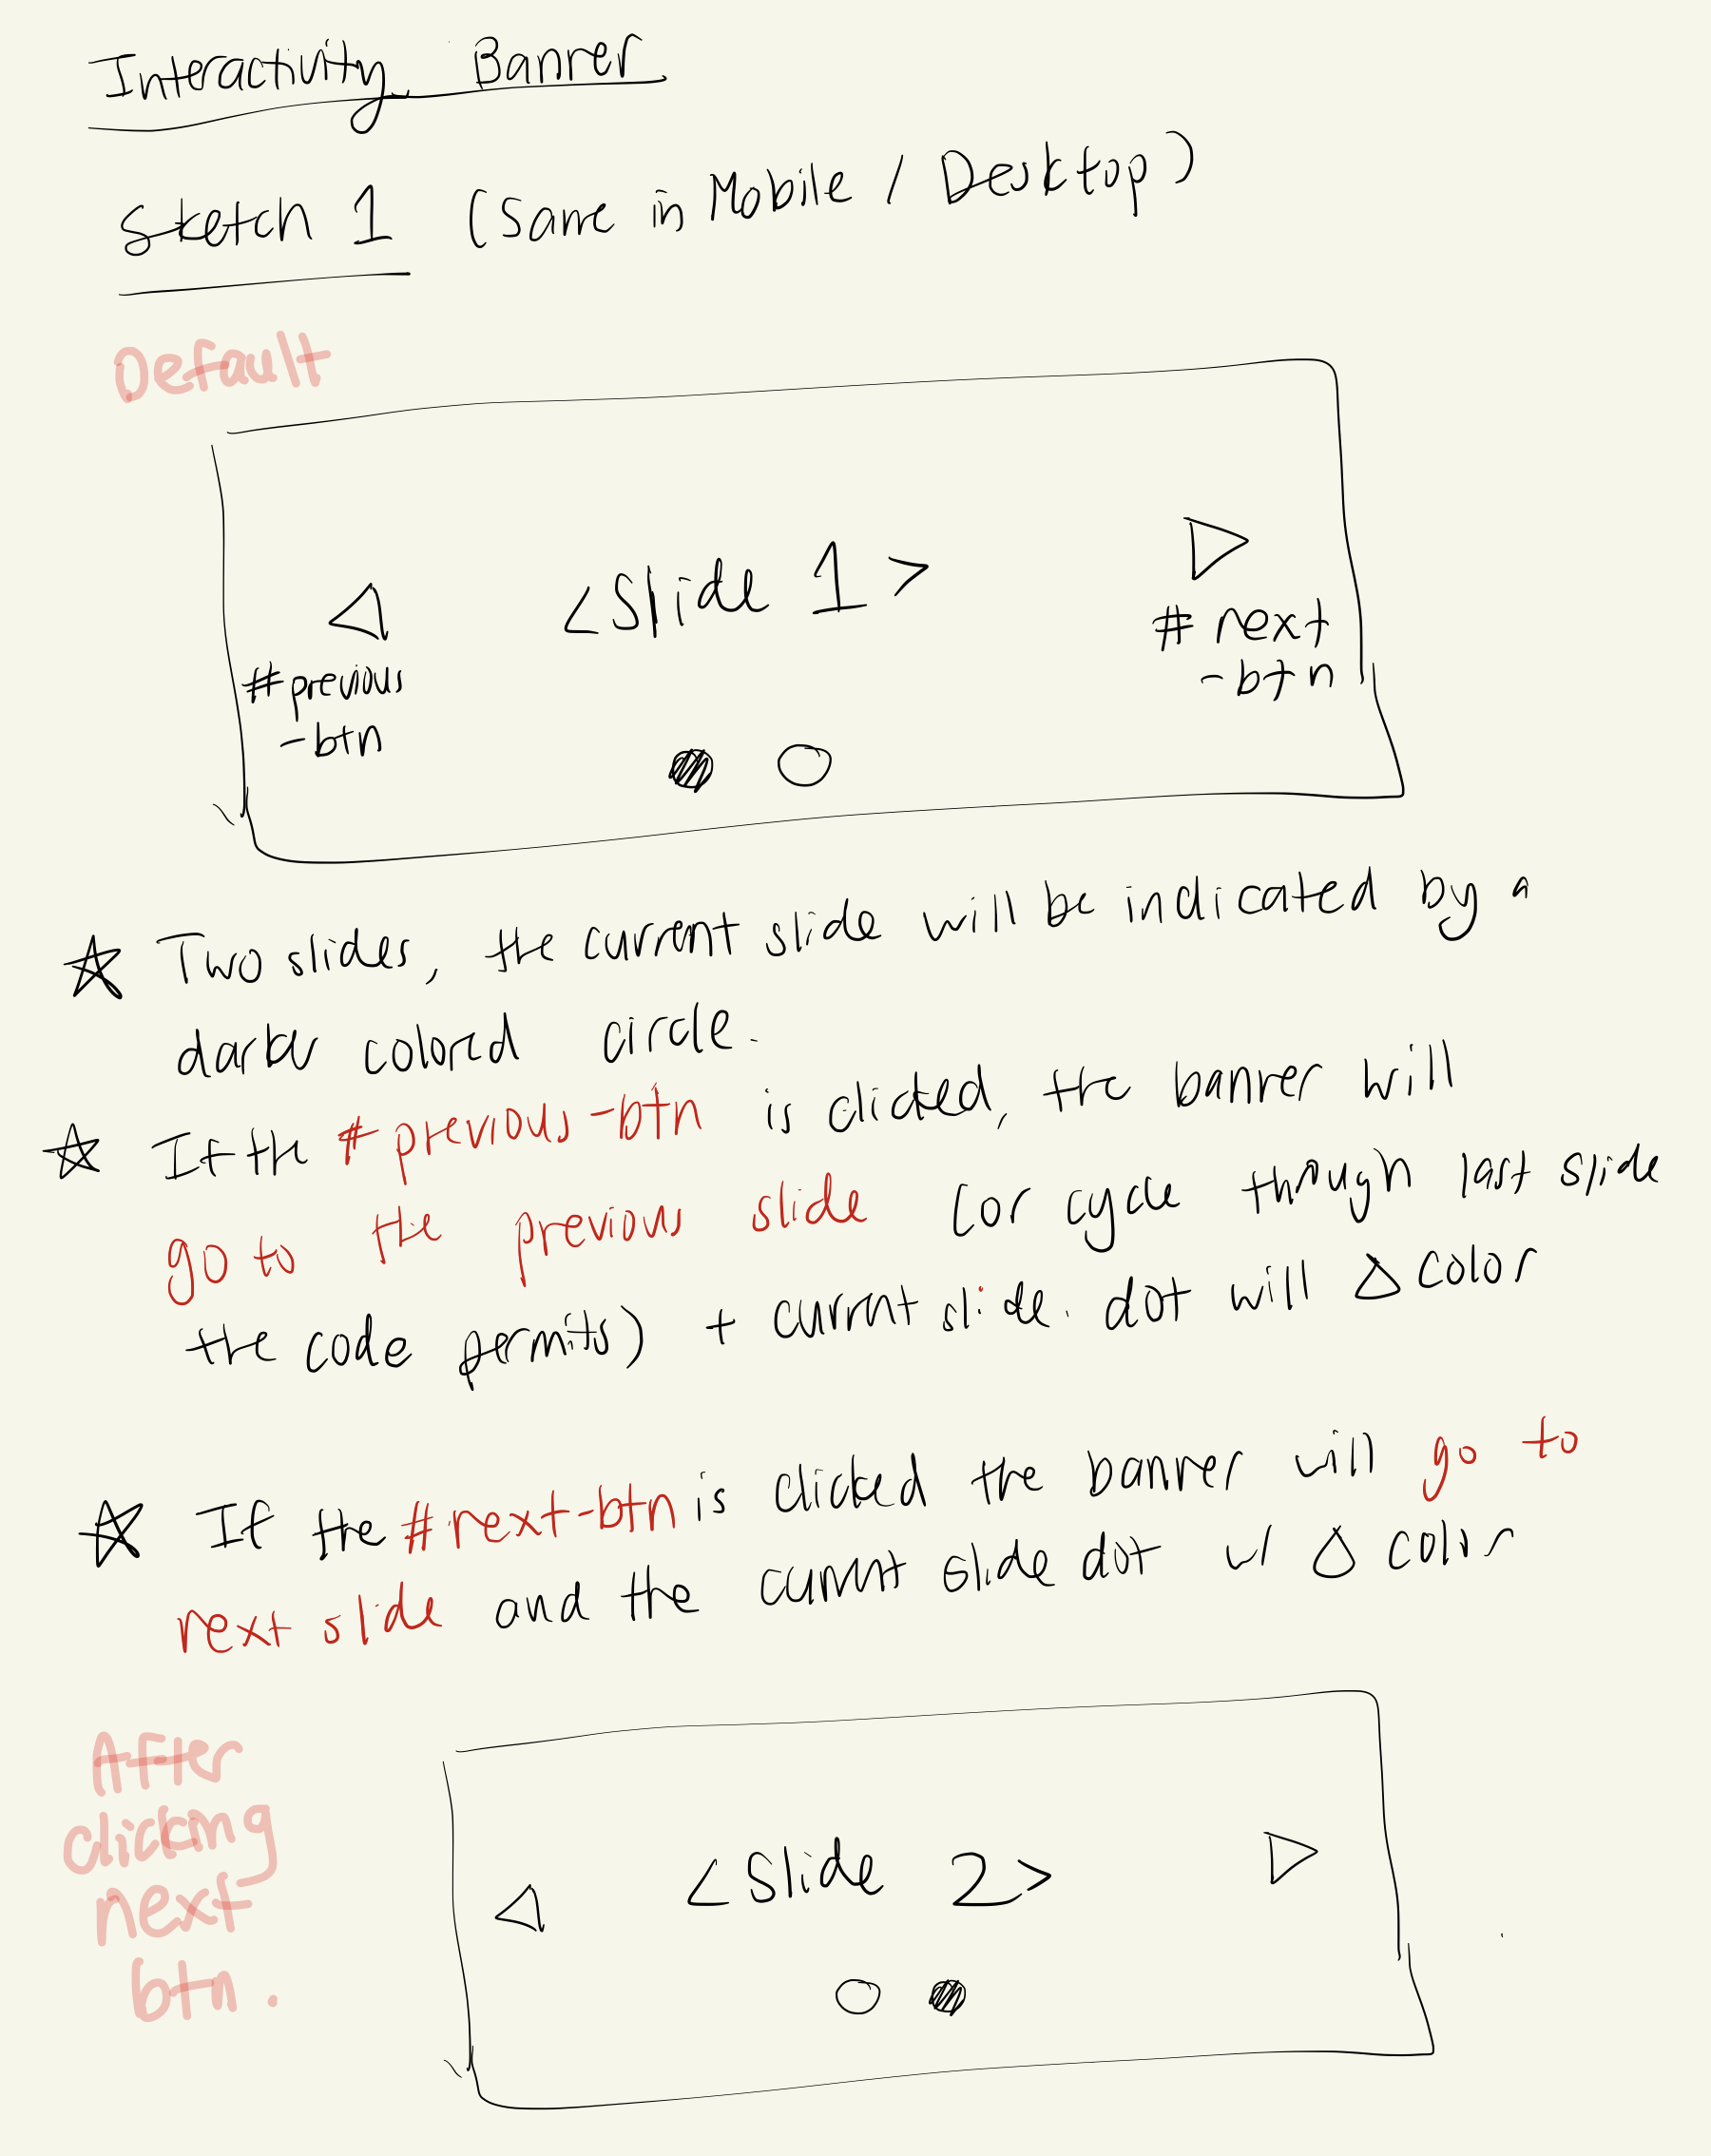 Interactivity Banner
Sketch 1 (Same in Mobile / Desktop)
Default
<Slide 1>
#previous
-btn
#next
-btn
☆ Two slides, the current slide will be indicated by a
darker colored circle.
☆ If the #previous-btn is clicked, the banner will
go to the previous slide (or cycle though last slide
the code permits) + current slide. dot will Δ color
☆ If the #next-btn is clicked the banner will go to
next slide and the current slide dot w/ Δ color
After
clicking
next
btn.
<Slide 2>